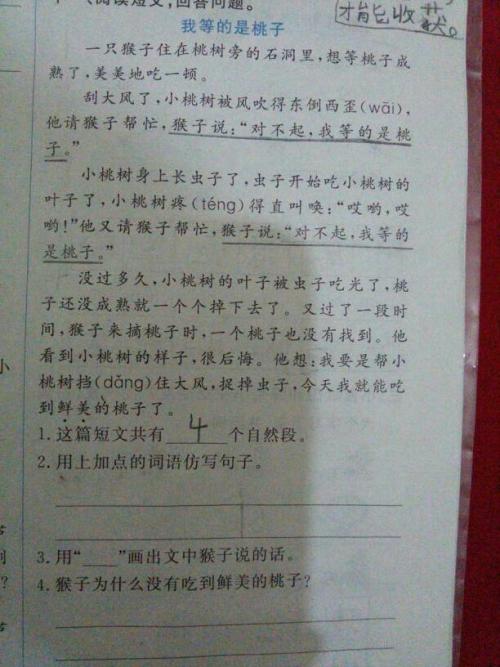 、阅读短文，回答问题。
才能收获。
我等的是桃子
一只猴子住在桃树旁的石洞里，想等桃子成
熟了，美美地吃一顿。
刮大风了，小桃树被风吹得东倒西歪(wāi)，
他请猴子帮忙，猴子说：“对不起，我等的是桃
子。”
小桃树身上长虫子了，虫子开始吃小桃树的
叶子了，小桃树疼(téng)得直叫唤：“哎哟，哎
哟！”他又请猴子帮忙，猴子说：“对不起，我等的
是桃子。”
没过多久，小桃树的叶子被虫子吃光了，桃
子还没成熟就一个个掉下去了。又过了一段时
间，猴子来摘桃子时，一个桃子也没有找到。他
看到小桃树的样子，很后悔。他想：我要是帮小
桃树挡(dǎng)住大风，捉掉虫子，今天我就能吃
到鲜美的桃子了。
1.这篇短文共有 4 个自然段。
2.用上加点的词语仿写句子。
3.用“____”画出文中猴子说的话。
4.猴子为什么没有吃到鲜美的桃子？
小
？